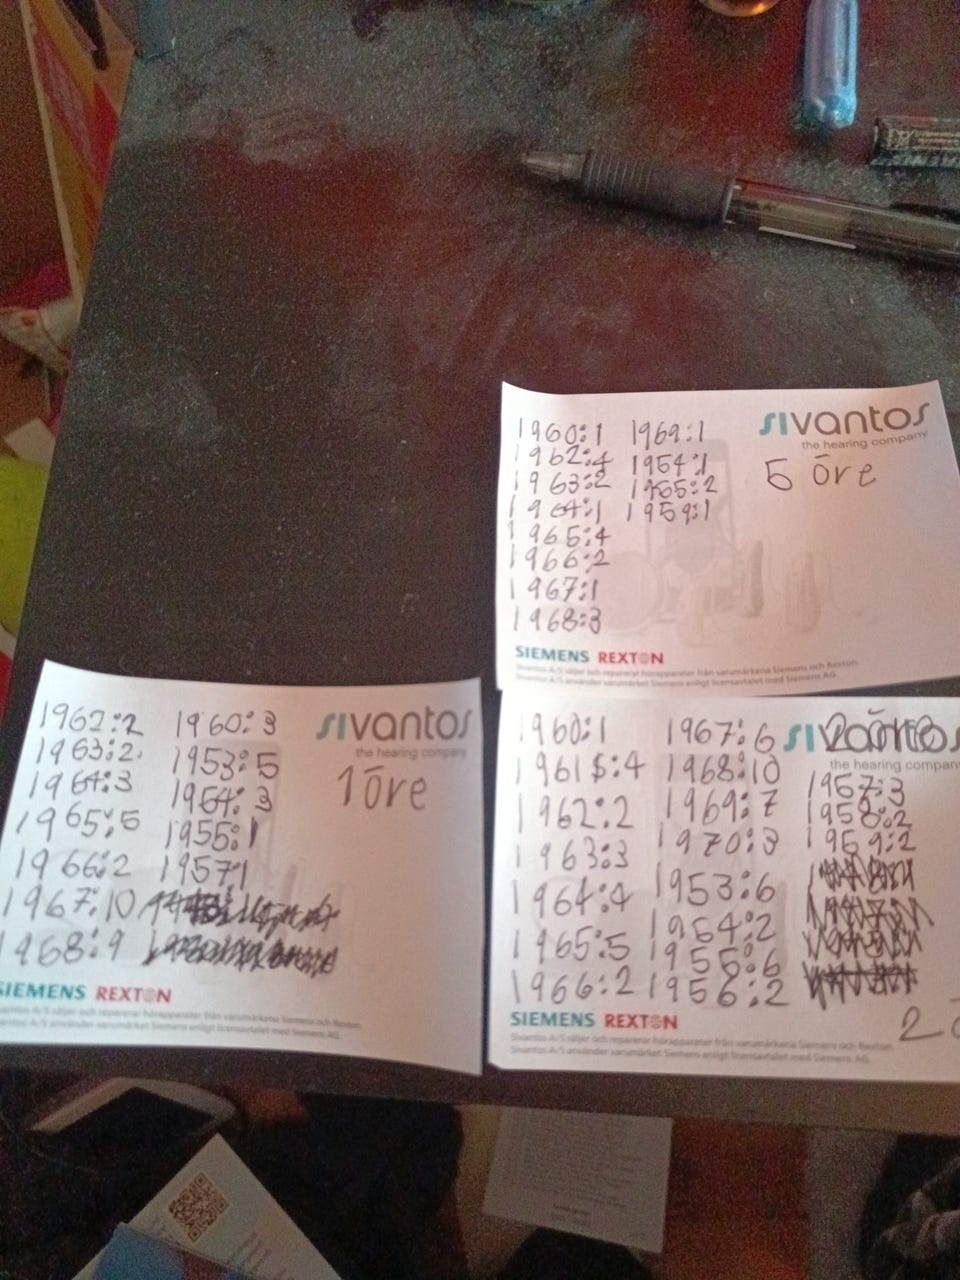 1960:1 1969:1
1962:4 1954:1
1963:2 1955:2
1964:1 1959:1
1965:4
1966:2
1967:1
1968:3
sivantos
the hearing company
5 öre
SIEMENS REXTON
Sivantos A/S säljer och reparerar hörapparater från varumärkena Siemens och Rexton.
Sivantos A/S använder varumärket Siemens enligt licensavtalet med Siemens AG.
1962:2 1960:3
1963:2 1953:5
1964:3 1954:3
1965:5 1955:1
1966:2 1957:1
1967:10
1968:9
sivantos
the hearing company
1 öre
SIEMENS REXTON
Sivantos A/S säljer och reparerar hörapparater från varumärkena Siemens och Rexton.
Sivantos A/S använder varumärket Siemens enligt licensavtalet med Siemens AG.
1960:1 1967:6
1961:4 1968:10 1957:3
1962:2 1969:7 1958:2
1963:3 1970:3 1959:2
1964:4 1953:6
1965:5 1954:2
1966:2 1955:6
1956:2
sivantos
the hearing company
2 ö
SIEMENS REXTON
Sivantos A/S säljer och reparerar hörapparater från varumärkena Siemens och Rexton.
Sivantos A/S använder varumärket Siemens enligt licensavtalet med Siemens AG.